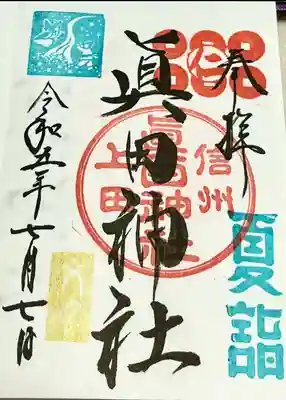 奉拝
夏詣
眞田神社
信州
上田
眞田神社
令和五年七月七日